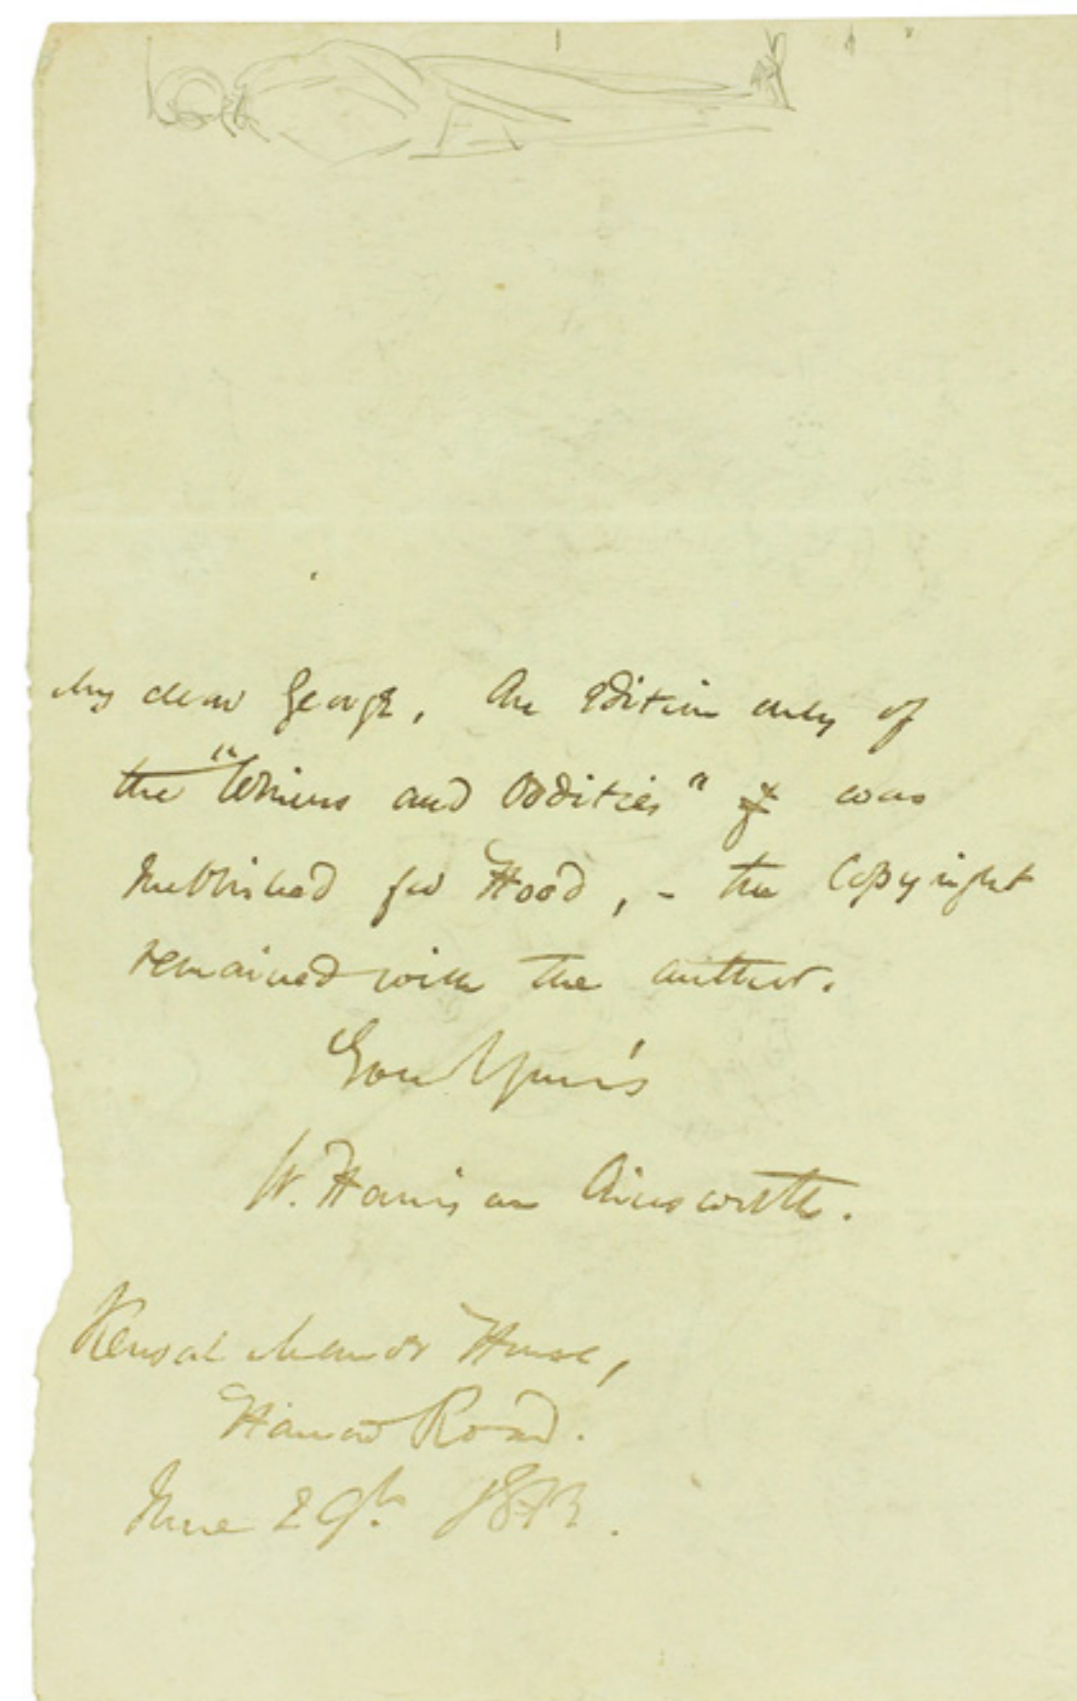 My dear George, An edition only of
the "Whims and Oddities" was
published for Hood, - the Copyright
remained with the author.
Ever Yours
W. Harrison Ainsworth.
Kensal Manor House,
Harrow Road.
June 29th. 1843.